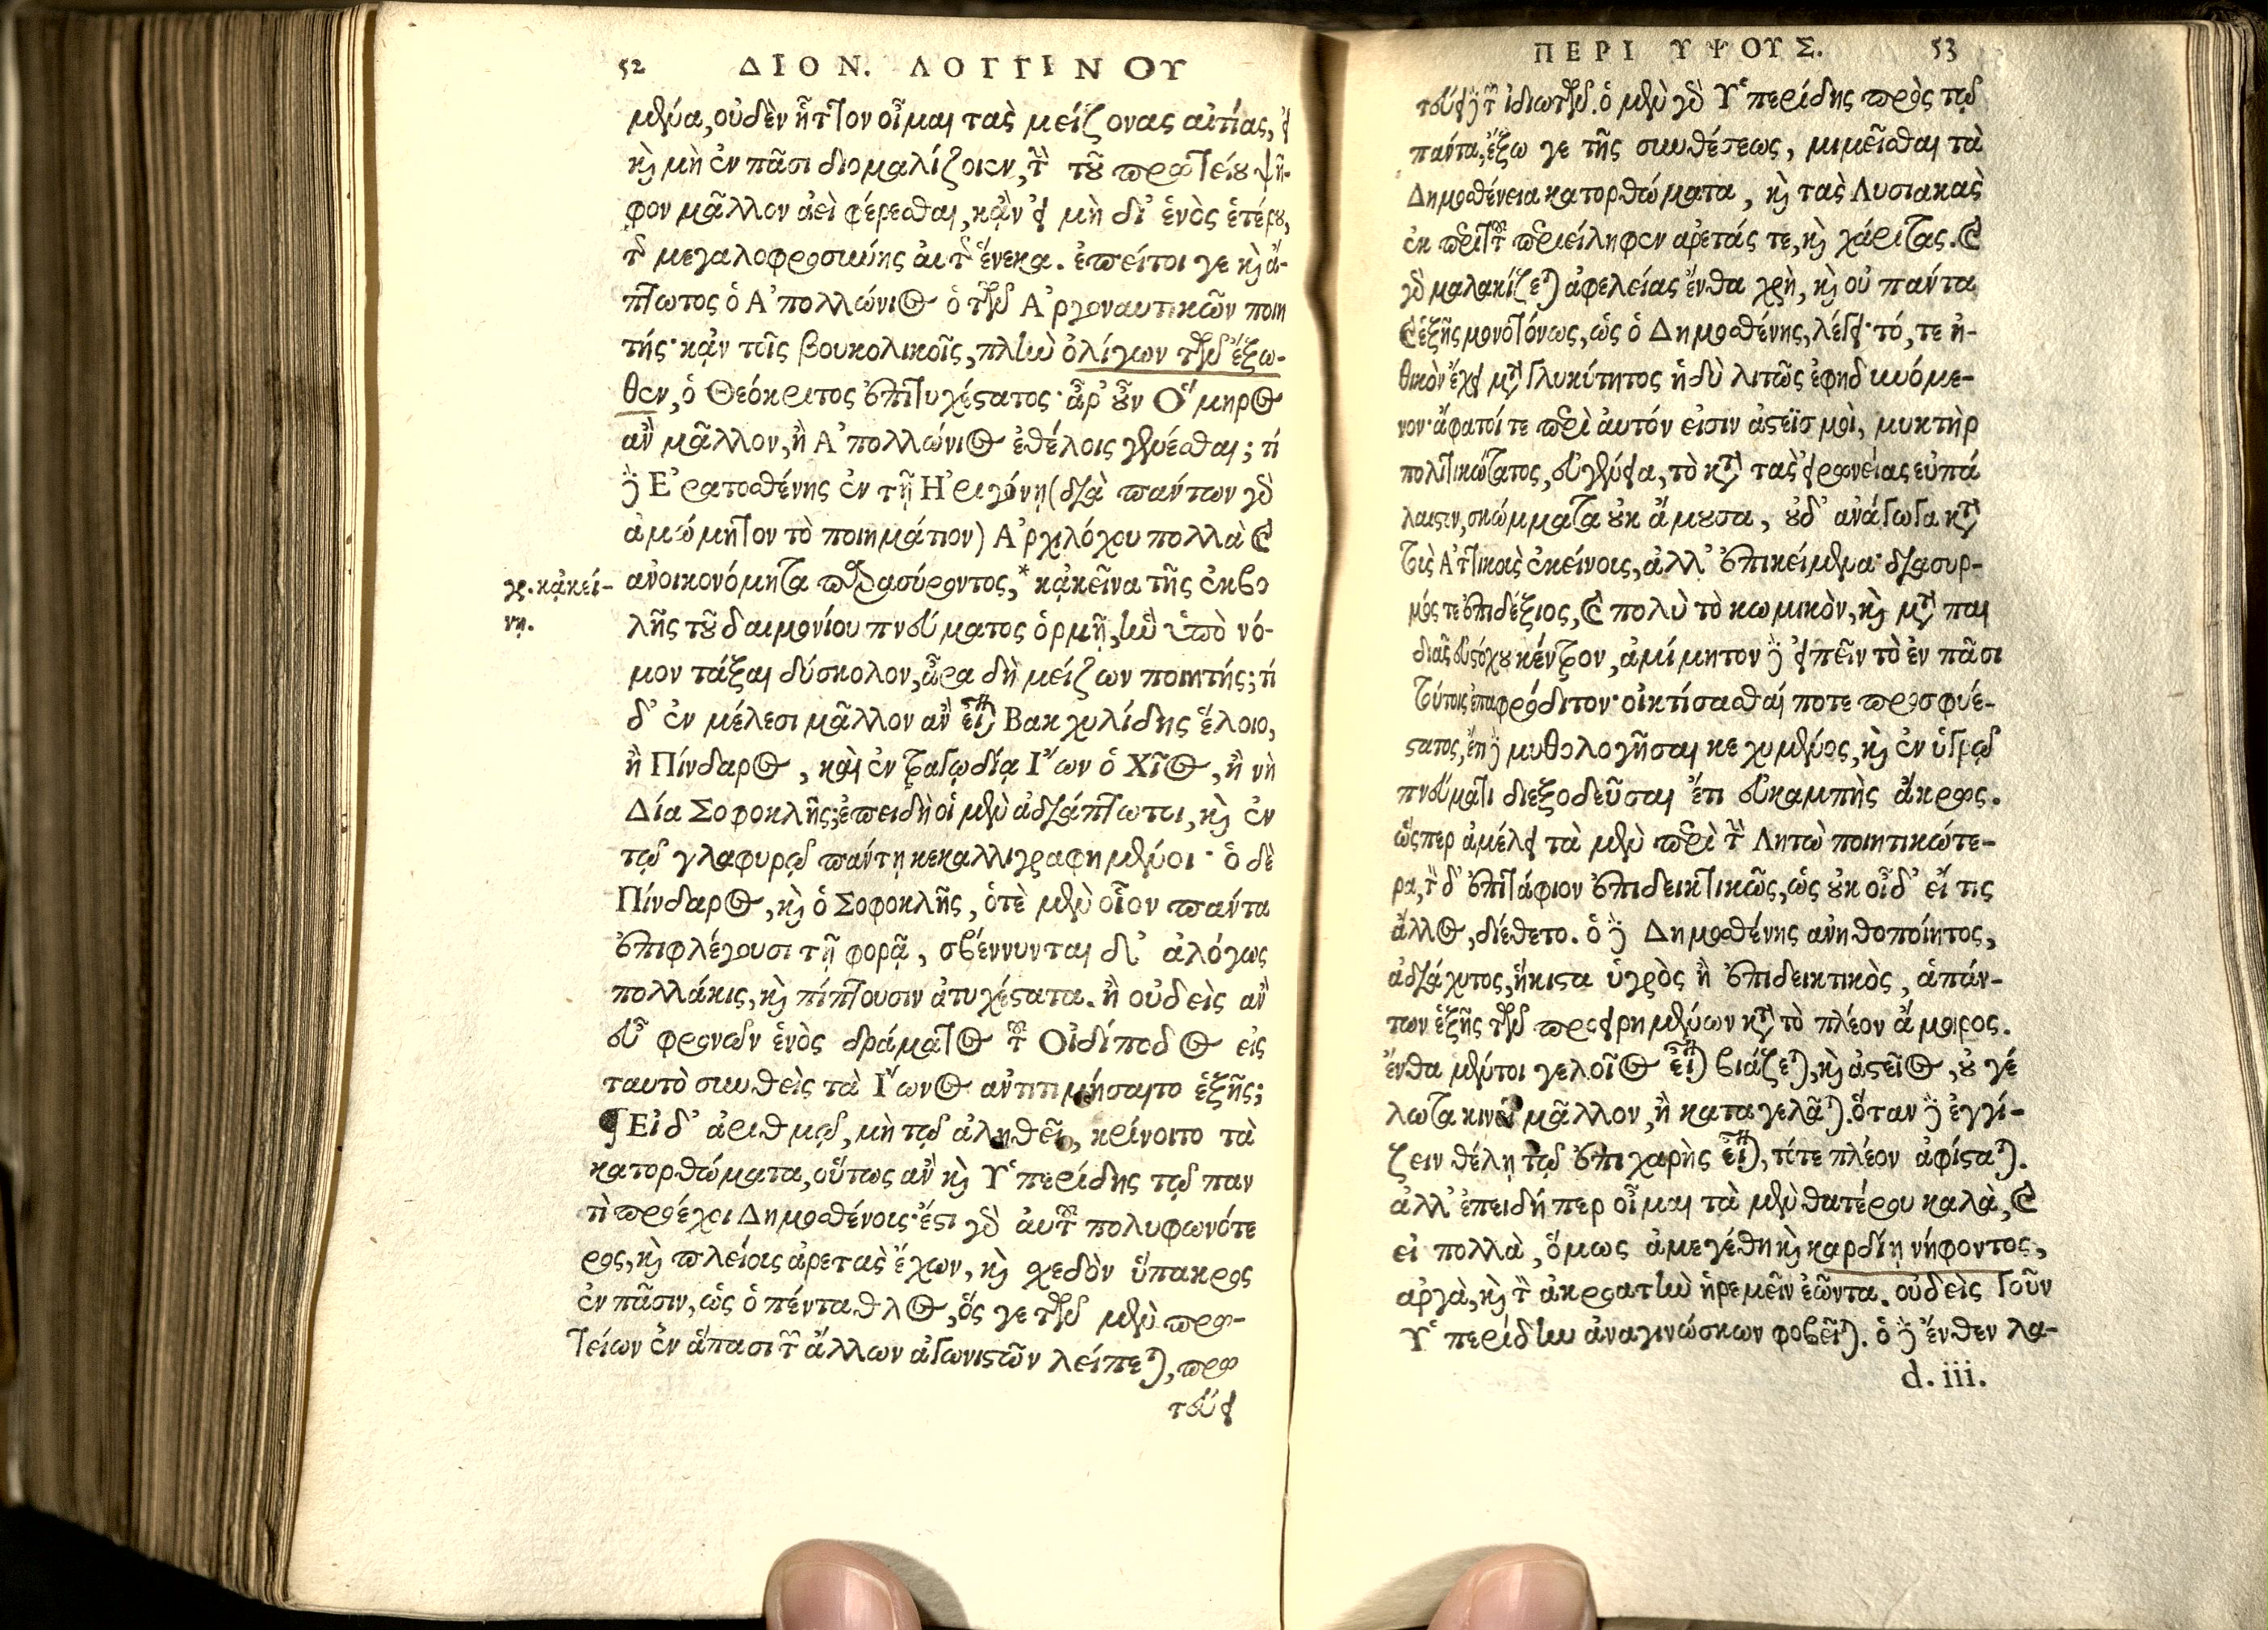 52 ΔΙΟΝ. ΛΟΓΓΙΝΟΥ
μϐμα, οὐδὲν ἧττον οἶμαι τὰς μείζονας αἰτίας, εἰ
καὶ μὴ ἐν πᾶσι διομαλίζοιεν, τὴν τοῦ πρωτείου ψῆ-
φον μᾶλλον ἀεὶ φέρεσθαι, κἂν εἰ μὴ δι' ἑνὸς ἑτέρου,
τῆς μεγαλοφροσύνης αὐτῆς ἕνεκα. ἐπείτοι γε καὶ ἄ-
πτωτος ὁ Ἀπολλώνιος ὁ τῶν Ἀργοναυτικῶν ποιη
τής· κἀν τοῖς βουκολικοῖς, πλὴν ὀλίγων τῶν ἔξω-
θεν, ὁ Θεόκριτος ἐπιτυχέστατος· ἆρ' οὖν Ὅμηρος
ἂν μᾶλλον, ἢ Ἀπολλώνιος ἐθέλοις γενέσθαι; τί
δὲ Ἐρατοσθένης ἐν τῇ Ἠριγόνῃ (διὰ πάντων γὰρ
ἀμώμητον τὸ ποιημάτιον) Ἀρχιλόχου πολλὰ καὶ
ἀνοικονόμητα παρασύροντος,* κἀκεῖνα τῆς ἐκβο
γρ. κἀκεί-
νῃ.
λῆς τοῦ δαιμονίου πνεύματος ὁρμῇ, ἣν ὑπὸ νό-
μον τάξαι δύσκολον, ἆρα δὴ μείζων ποιητής; τί
δ' ἐν μέλεσι μᾶλλον ἂν εἶναι Βακχυλίδης ἕλοιο,
ἢ Πίνδαρος, καὶ ἐν τραγῳδίᾳ Ἴων ὁ Χῖος, ἢ νὴ
Δία Σοφοκλῆς; ἐπειδὴ οἱ μὲν ἀδιάπτωτοι, καὶ ἐν
τῷ γλαφυρῷ πάντη κεκαλλιγραφημένοι· ὁ δὲ
Πίνδαρος, καὶ ὁ Σοφοκλῆς, ὁτὲ μὲν οἷον πάντα
ἐπιφλέγουσι τῇ φορᾷ, σβέννυνται δ' ἀλόγως
πολλάκις, καὶ πίπτουσιν ἀτυχέστατα. ἢ οὐδεὶς ἂν
εὖ φρονῶν ἑνὸς δράματος τοῦ Οἰδίποδος εἰς
ταυτὸ συνθεὶς τὰ Ἴωνος ἀντιτιμήσαιτο ἑξῆς;
¶ Εἰ δ' ἀριθμῷ, μὴ τῷ ἀληθεῖ, κρίνοιτο τὰ
κατορθώματα, οὕτως ἂν καὶ Ὑπερίδης τῷ παν
τὶ προέχοι Δημοσθένους· ἔστι γὰρ αὐτοῦ πολυφωνότε
ρος, καὶ πλείους ἀρετὰς ἔχων, καὶ σχεδὸν ὕπακρος
ἐν πᾶσιν, ὡς ὁ πένταθλος, ὅς γε τῶν μὲν πρω-
τείων ἐν ἅπασι τῶν ἄλλων ἀγωνιστῶν λείπεται, πρω
τεύει
ΠΕΡΙ ΥΨΟΥΣ. 53
τεύει δὲ τῶν ἰδιωτῶν. ὁ μὲν γὰρ Ὑπερίδης πρὸς τῷ
πάντα, ἔξω γε τῆς συνθέσεως, μιμεῖσθαι τὰ
Δημοσθένεια κατορθώματα, καὶ τὰς Λυσιακὰς
ἐκ περιττοῦ περιείληφεν ἀρετάς τε, καὶ χάριτας. καὶ
γὰρ μαλακίζεται ἀφελείας ἔνθα χρὴ, καὶ οὐ πάντα
καὶ ἑξῆς μονοτόνως, ὡς ὁ Δημοσθένης, λέγει· τό, τε ἠ-
θικὸν ἔχει μετὰ γλυκύτητος ἡδὺ λιτῶς ἐφηδυνόμε-
νον· ἄφατοί τε περὶ αὐτόν εἰσιν ἀστεϊσμοὶ, μυκτὴρ
πολιτικώτατος, εὐγένεια, τὸ κατὰ τὰς εἰρωνείας εὐπά
λαιστιν, σκώμματα οὐκ ἄμουσα, οὐδ' ἀνάγωγα κατὰ
τοὺς Ἀττικοὺς ἐκείνοις, ἀλλ' ἐπικείμενα· διασυρ-
μός τε ἐπιδέξιος, καὶ πολὺ τὸ κωμικὸν, καὶ μετὰ παι
διᾶς εὐστόχου κέντρον, ἀμίμητον δὲ εἰπεῖν τὸ ἐν πᾶσι
τούτοις ἐπαφρόδιτον· οἰκτίσασθαί ποτε προσφυέ-
στατος, ἔτι δὲ μυθολογῆσαι κεχυμένος, καὶ ἐν ὑγρῷ
πνεύματι διεξοδεῦσαι ἔτι εὐκαμπὴς ἄκρος.
ὥσπερ ἀμέλει τὰ μὲν περὶ τὴν Λητὼ ποιητικώτε-
ρα, τὸν δ' ἐπιτάφιον ἐπιδεικτικῶς, ὡς οὐκ οἶδ' εἴ τις
ἄλλος, διέθετο. ὁ δὲ Δημοσθένης ἀνηθοποίητος,
ἀδιάχυτος, ἥκιστα ὑγρὸς ἢ ἐπιδεικτικὸς, ἁπάν-
των ἑξῆς τῶν προειρημένων κατὰ τὸ πλέον ἄμοιρος.
ἔνθα μέντοι γελοῖος εἶναι βιάζεται, καὶ ἀστεῖος, οὐ γέ
λωτα κινεῖ μᾶλλον, ἢ καταγελᾶται. ὅταν δὲ ἐγγί-
ζειν θέλῃ τῷ ἐπιχαρὴς εἶναι, τότε πλέον ἀφίσταται.
ἀλλ' ἐπειδή περ οἶμαι τὰ μὲν θατέρου καλὰ, καὶ
εἰ πολλὰ, ὅμως ἀμεγέθη καὶ καρδίῃ νήφοντος,
ἀργὰ, καὶ τὸν ἀκροατὴν ἠρεμεῖν ἐῶντα. οὐδεὶς γοῦν
Ὑπερίδην ἀναγινώσκων φοβεῖται. ὁ δὲ ἔνθεν λα-
d. iii.